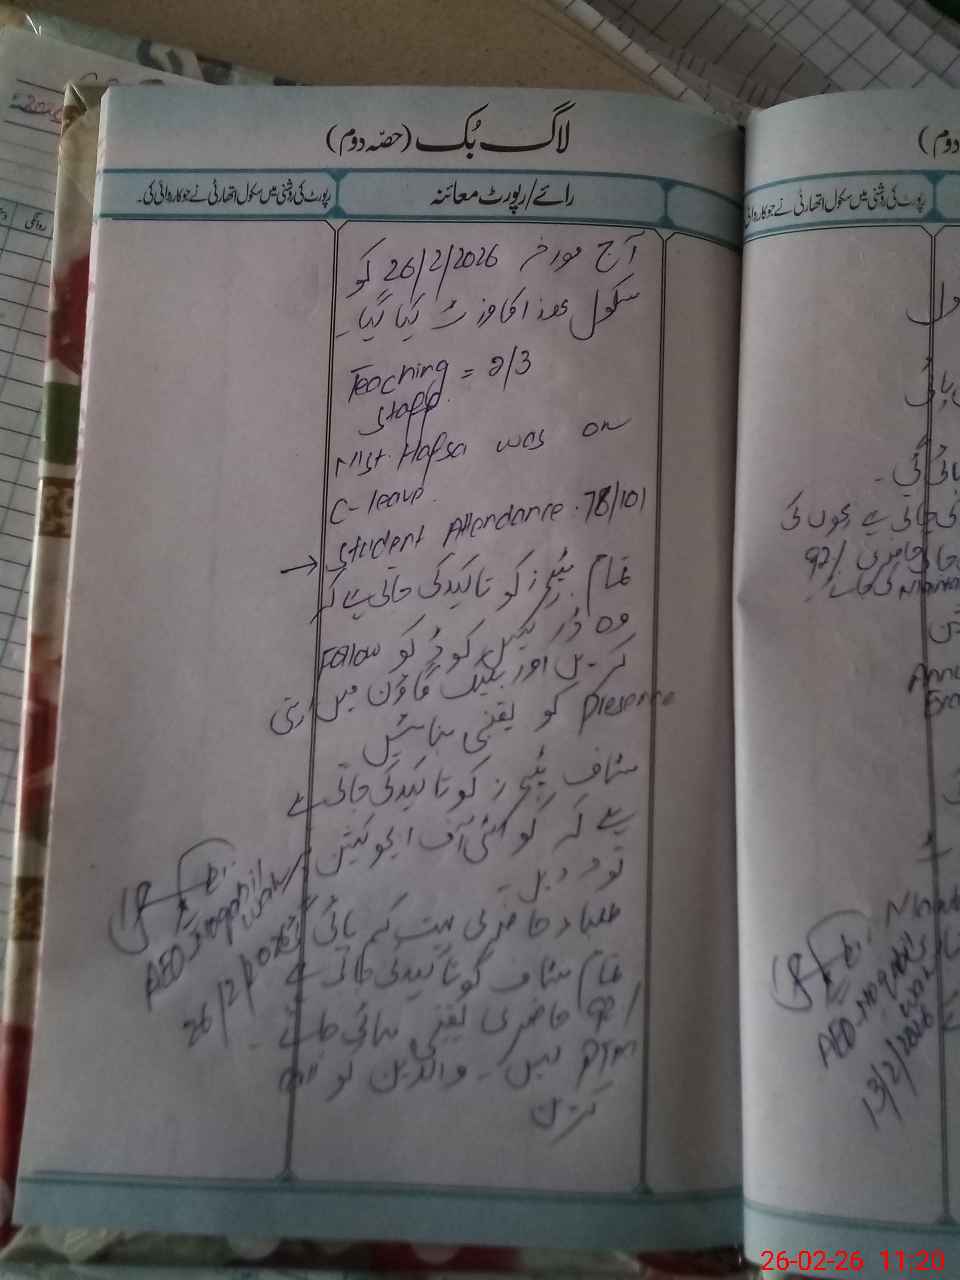 لاگ بُک (حصّہ دوم)
رائے/رپورٹ معائنہ
رپورٹ کی روشنی میں سکول اتھارٹی نے جو کاروائی کی۔
آج مورخہ 26/2/2026 کو
سکول ھذا کا وزٹ کیا گیا۔
Teaching Staff = 2/3
Mst. Hafsa was on
C-leave.
→ Student Attendance. 78/101
تمام ٹیچرز کو تاکید کی جاتی ہے کہ
وہ ڈریس کوڈ کو Follow
کریں اور بلیک گاؤن میں اپنی
Presence کو یقینی بنائیں
سٹاف ٹیچرز کو تاکید کی جاتی ہے
ہے کہ کوالٹی آف ایجوکیشن پر
توجہ دیں۔
طلباء حاضری بہت کم پائی گئی
تمام سٹاف کو تاکید کی جاتی ہے
92٪ حاضری یقینی بنائی جائے۔
PTM لیں۔ والدین کو Call
کریں
AEO
26/2/2026
دوم)
رپورٹ کی روشنی میں سکول اتھارٹی نے جو کاروائی
کی جاتی ہے بچوں کی
حاضری 92٪
کی جائے۔
AEO
13/2/2026
26-02-26 11:20